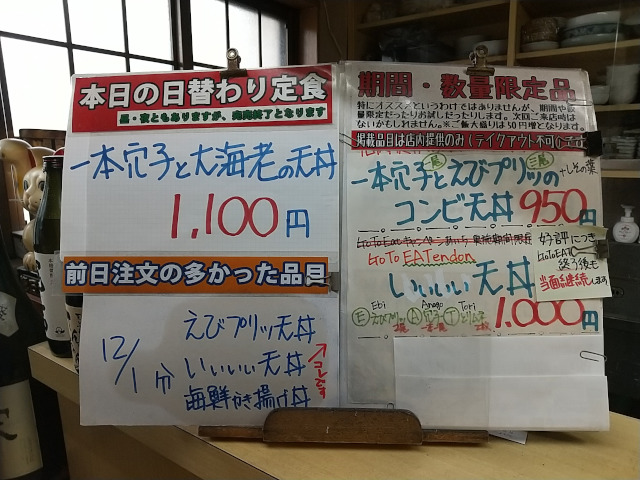 本日の日替わり定食
昼・夜ともありますが、売切終了となります
一本穴子と大海老の天丼
1,100円
前日注文の多かった品目
12/1分
えびプリッ天丼
いいいい天丼
海鮮かき揚げ丼
コレです
期間・数量限定品
特にオススメというわけではありませんが、期間や数
量限定だったりお試しだったりします。次回ご来店時は
ないかもしれません。※ご飯大盛りは90円増となります。
掲載品目は店内提供のみ(テイクアウト不可)
一本穴子とえびプリッの
一尾
三尾
+しその葉
コンビ天丼 950円
GoTo EATendon
いいいい天丼
好評につき
GoToEAT
終了後も
当面継続します
Ebi Anago Tori
Ⓔえびプリッ Ⓐ穴子 Ⓣとり
1,000円